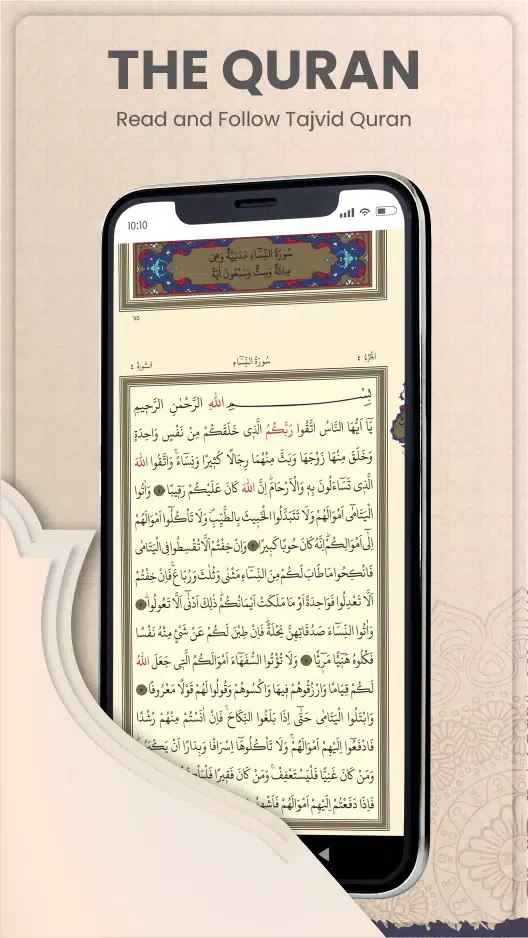 THE QURAN
Read and Follow Tajvid Quran
10:10
سُورَةُ النِّسَاءِ مَدَنِيَّةٌ وَهِيَ
مِائَةٌ وَسِتٌّ وَسَبْعُونَ اٰيَةً
٧٥
اَلْجُزْءُ ٤ سُورَةُ النِّسَاءِ اَلسُّورَةُ ٤
بِسْمِ اللّٰهِ الرَّحْمٰنِ الرَّحِيمِ
يَٓا اَيُّهَا النَّاسُ اتَّقُوا رَبَّكُمُ الَّذِي خَلَقَكُمْ مِنْ نَفْسٍ وَاحِدَةٍ
وَخَلَقَ مِنْهَا زَوْجَهَا وَبَثَّ مِنْهُمَا رِجَالًا كَثِيرًا وَنِسَٓاءً وَاتَّقُوا اللّٰهَ
الَّذِي تَسَٓاءَلُونَ بِهِ وَالْاَرْحَامَ اِنَّ اللّٰهَ كَانَ عَلَيْكُمْ رَقِيبًا ١ وَاٰتُوا
الْيَتَامٰٓى اَمْوَالَهُمْ وَلَا تَتَبَدَّلُوا الْخَبِيثَ بِالطَّيِّبِ وَلَا تَأْكُلُٓوا اَمْوَالَهُمْ
اِلٰٓى اَمْوَالِكُمْ اِنَّهُ كَانَ حُوبًا كَبِيرًا ٢ وَاِنْ خِفْتُمْ اَلَّا تُقْسِطُوا فِي الْيَتَامٰى
فَانْكِحُوا مَا طَابَ لَكُمْ مِنَ النِّسَٓاءِ مَثْنٰى وَثُلٰثَ وَرُبَاعَ فَاِنْ خِفْتُمْ
اَلَّا تَعْدِلُوا فَوَاحِدَةً اَوْ مَا مَلَكَتْ اَيْمَانُكُمْ ذٰلِكَ اَدْنٰٓى اَلَّا تَعُولُوا ٣
وَاٰتُوا النِّسَٓاءَ صَدُقَاتِهِنَّ نِحْلَةً فَاِنْ طِبْنَ لَكُمْ عَنْ شَيْءٍ مِنْهُ نَفْسًا
فَكُلُوهُ هَنِٓيـًٔا مَرِٓيـًٔا ٤ وَلَا تُؤْتُوا السُّفَهَٓاءَ اَمْوَالَكُمُ الَّتِي جَعَلَ اللّٰهُ
لَكُمْ قِيَامًا وَارْزُقُوهُمْ فِيهَا وَاكْسُوهُمْ وَقُولُوا لَهُمْ قَوْلًا مَعْرُوفًا ٥
وَابْتَلُوا الْيَتَامٰى حَتّٰٓى اِذَا بَلَغُوا النِّكَاحَ فَاِنْ اٰنَسْتُمْ مِنْهُمْ رُشْدًا
فَادْفَعُٓوا اِلَيْهِمْ اَمْوَالَهُمْ وَلَا تَأْكُلُوهَٓا اِسْرَافًا وَبِدَارًا اَنْ
وَمَنْ كَانَ غَنِيًّا فَلْيَسْتَعْفِفْ وَمَنْ كَانَ فَقِيرًا
فَاِذَا دَفَعْتُمْ اِلَيْهِمْ اَمْوَالَهُمْ